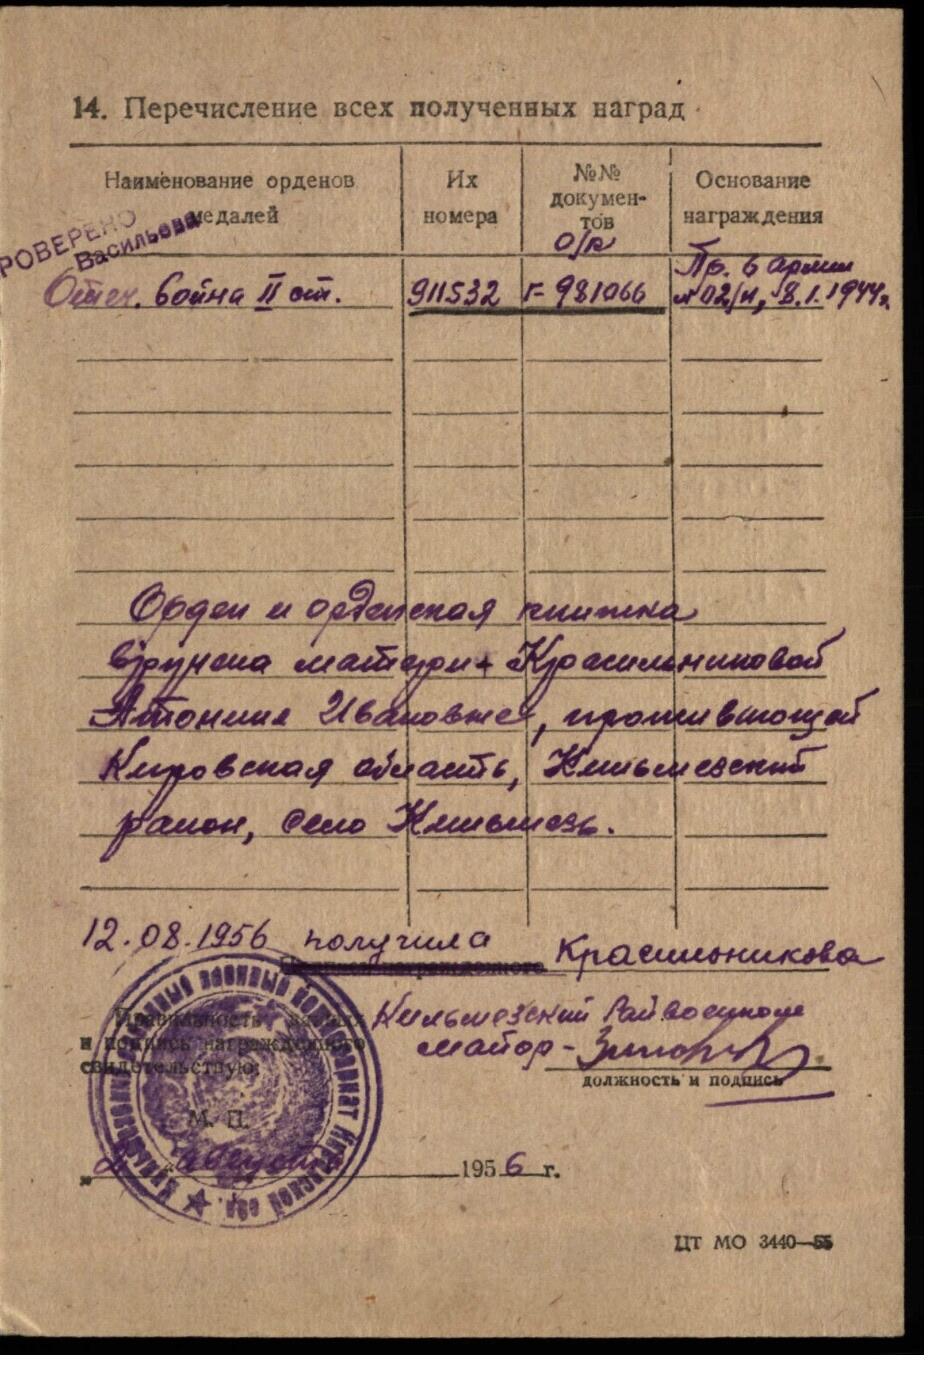 14. Перечисление всех полученных наград
Наименование орденов
медалей
Их
номера
№№
докумен-
тов
о/к
Основание
награждения
РОВЕРЕНО
Васильева
Отеч. война II ст.
911532
г- 981066
Пр. 6 армии
№02/н, 8.1.1944г.
Орден и орденская книжка
вручена матери Красильниковой
Антонине Ивановне, проживающей
Кировская область, Кильмезский
район, село Кильмезь.
12.08.1956 получила Красильникова
Правильность данных
и подпись награжденного
свидетельствую:
Кильмезский Райвоенком
майор -
должность и подпись
М. П.
" августа 1956 г.
ЦТ МО 3440—55